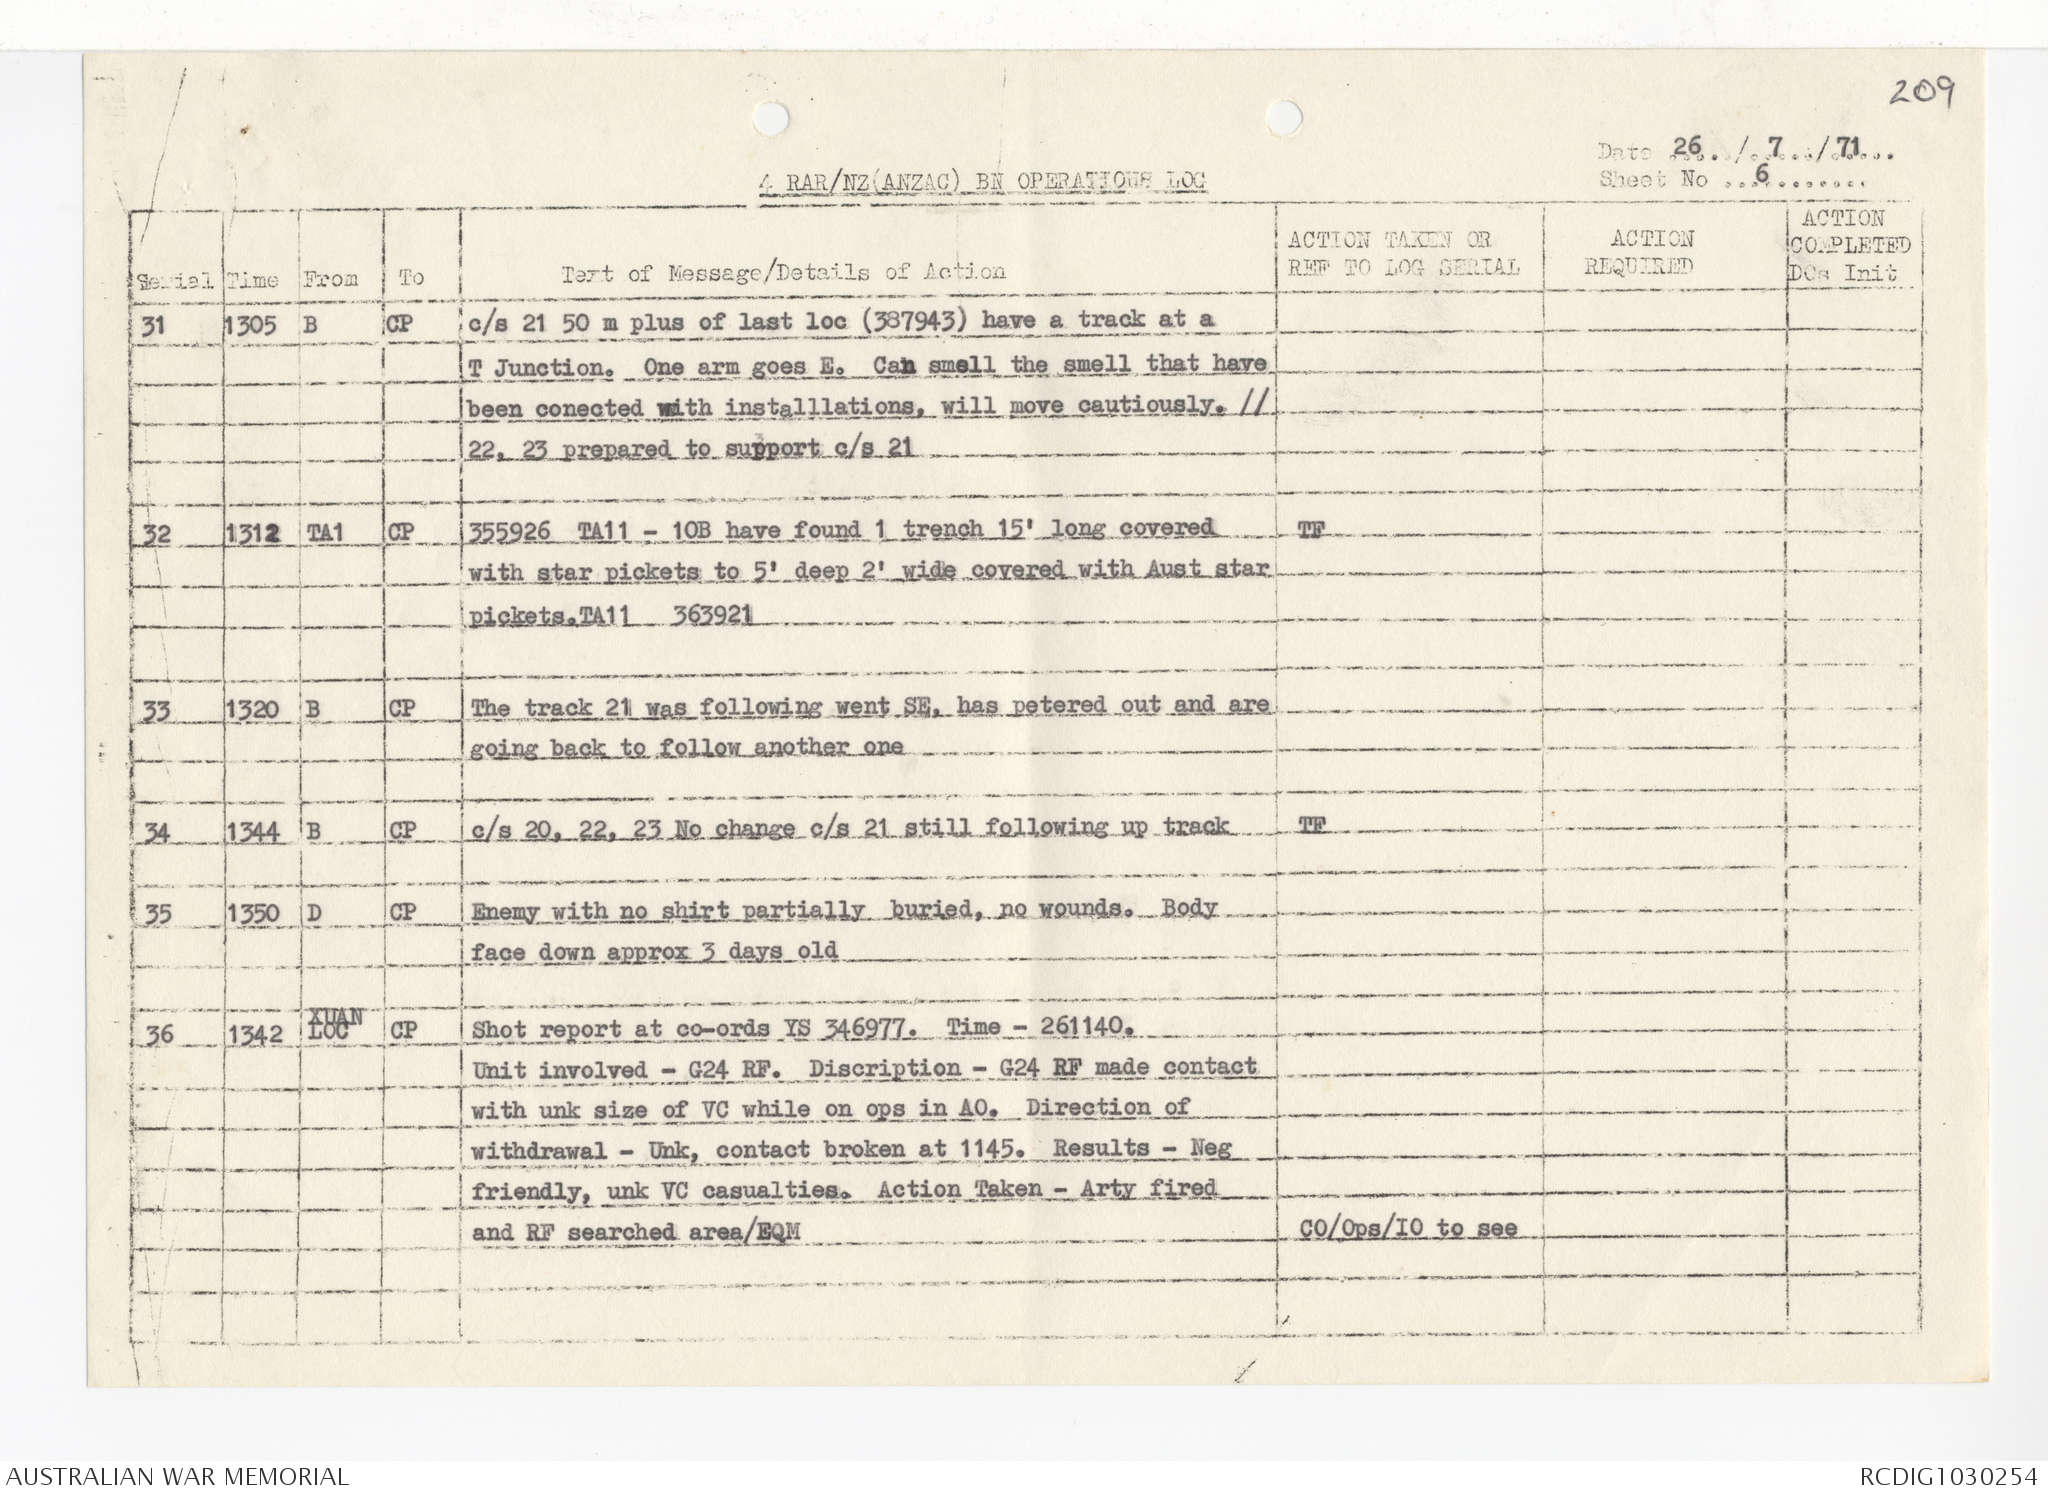 209
Date 26 / 7 / 71
Sheet No 6
4 RAR/NZ(ANZAC) BN OPERATIONS LOG
Serial Time From To Text of Message/Details of Action ACTION TAKEN OR REF TO LOG SERIAL ACTION REQUIRED ACTION COMPLETED DOs Init
31 1305 B CP c/s 21 50 m plus of last loc (387943) have a track at a
T Junction. One arm goes E. Can smell the smell that have
been conected with installlations, will move cautiously. //
22, 23 prepared to support c/s 21
32 1312 TA1 CP 355926 TA11 - 10B have found 1 trench 15' long covered TF
with star pickets to 5' deep 2' wide covered with Aust star
pickets.TA11 363921
33 1320 B CP The track 21 was following went SE, has petered out and are
going back to follow another one
34 1344 B CP c/s 20, 22, 23 No change c/s 21 still following up track TF
35 1350 D CP Enemy with no shirt partially buried, no wounds. Body
face down approx 3 days old
36 1342 XUAN LOC CP Shot report at co-ords YS 346977. Time - 261140.
Unit involved - G24 RF. Discription - G24 RF made contact
with unk size of VC while on ops in AO. Direction of
withdrawal - Unk, contact broken at 1145. Results - Neg
friendly, unk VC casualties. Action Taken - Arty fired
and RF searched area/EQM CO/Ops/IO to see
AUSTRALIAN WAR MEMORIAL
RCDIG1030254